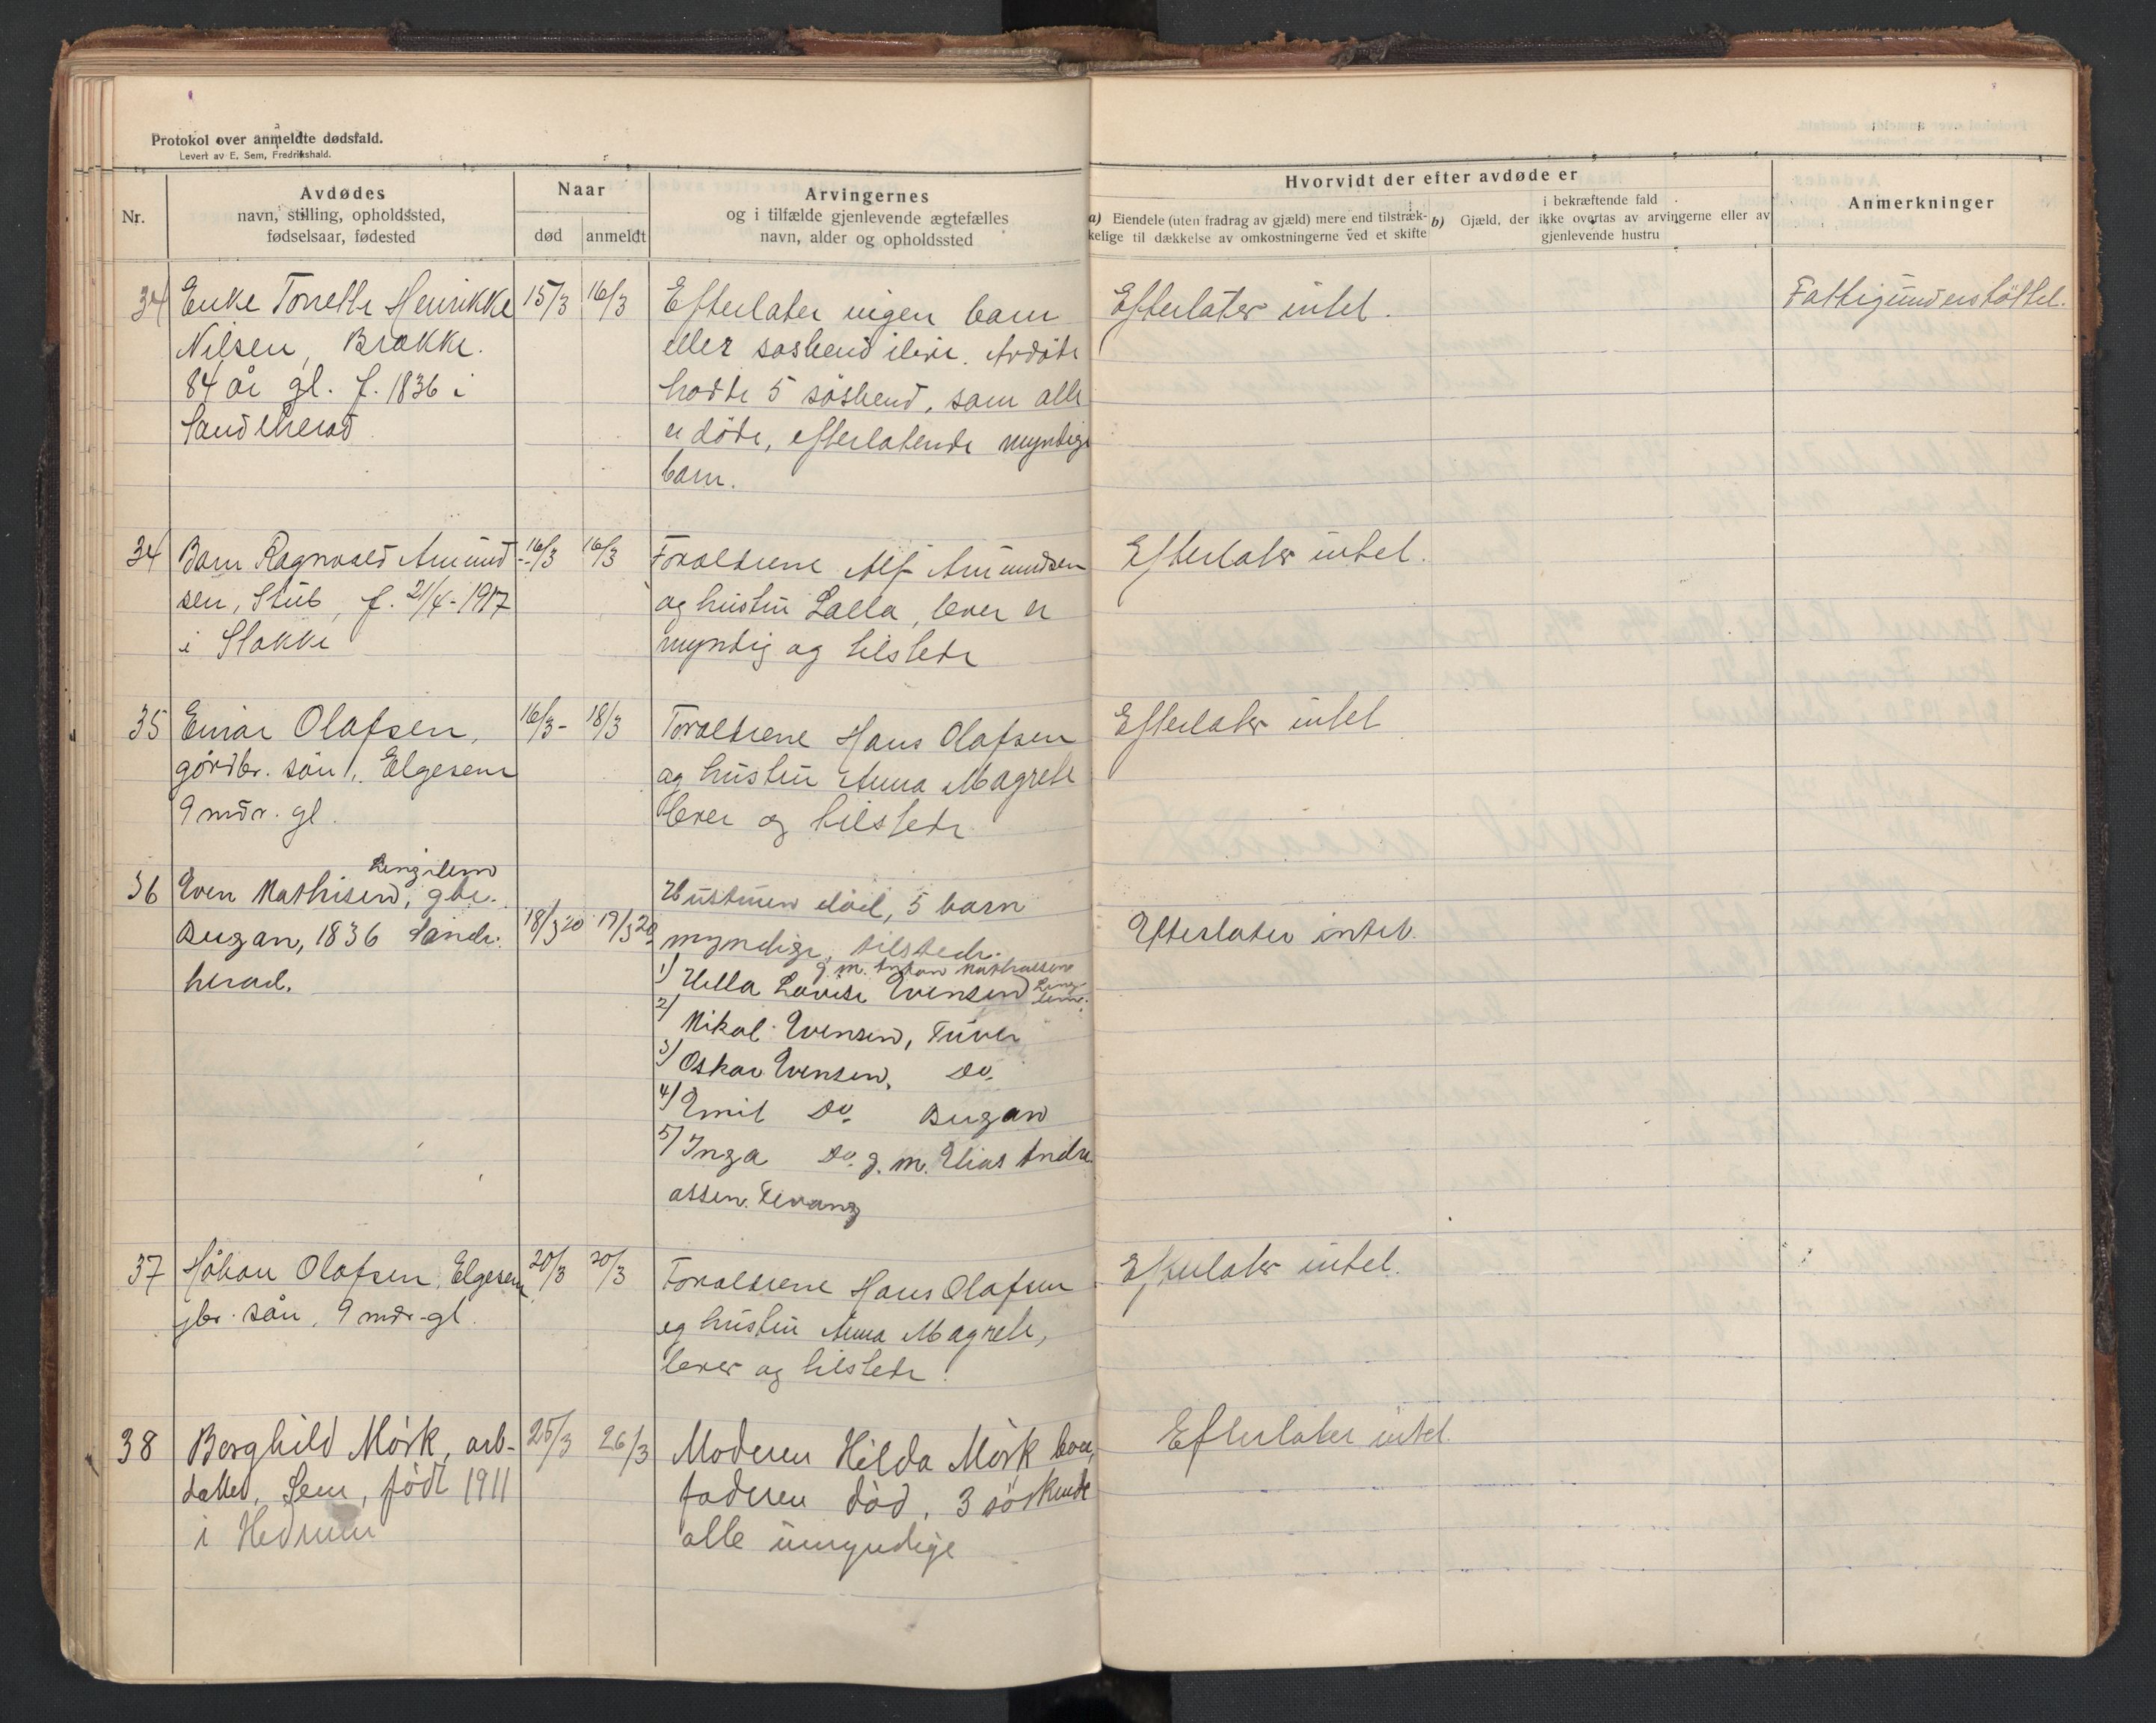 Protokol over anmeldte dødsfald.
Levert av E. Sem, Fredrikshald.
Nr.
Avdødes
navn, stilling, opholdssted,
fødselsaar, fødested
Naar
død
anmeldt
Arvingernes
og i tilfælde gjenlevende ægtefælles
navn, alder og opholdssted
Hvorvidt der efter avdøde er
a) Eiendele (uten fradrag av gjæld) mere end tilstræk-
kelige til dækkelse av omkostningerne ved et skifte
b) Gjæld, der
i bekræftende fald
ikke overtas av arvingerne eller av
gjenlevende hustru
Anmerkninger
34 Enke Torrette Henrikke 15/3 16/3 Efterlater ingen barn Efterlater intet. Fattigunderstöttet.
Nilsen, Brekke. eller søskend ilive. Avdøde
84 år gl. f. 1836 i hadde 5 söskend, som alle
Sandeherad er döde, efterlatende myndige
barn.
34 Barn Ragnvald Amund- 16/3 16/3 Forældrene Alf Amundsen Efterlater intet.
sen, Stub, f. 21/4-1917 og hustru Lalla, lever er
i Stokke myndig og tilstede
35 Einar Olafsen, 16/3- 18/3 Forældrene Hans Olafsen Efterlater intet
gårdbr. sön, Elgesem og hustru Anna Magrete
9 mdr. gl. lever og tilstede
Lingelem
36 Even Mathisen, gbr. Hustruen död, 5 barn
Bugan, 1836 Sande- 18/3 20 19/3 20 myndige, tilstede. Efterlater intet.
herad. g. m. Anton Mathiesen
1) Hella Lovise Evensen Ling-
lem.
2) Nikol. Evensen, Tuver
3) Oskar Evensen, Do.
4) Emil Do. Bugan
5) Inga Do. g. m. Elias Andre-
assen. Tevang
37 Håkon Olafsen, Elgesem 20/3 20/3 Forældrene Hans Olafsen Efterlater intet.
gbr. sön, 9 mdr. gl. og hustru Anna Magrete,
lever og tilstede.
38 Borghild Mörk, arb- 25/3 26/3 Moderen Hilda Mörk lever, Efterlater intet.
datter, Sem, födt 1911 faderen död, 3 söskende
i Hedrum alle umyndige